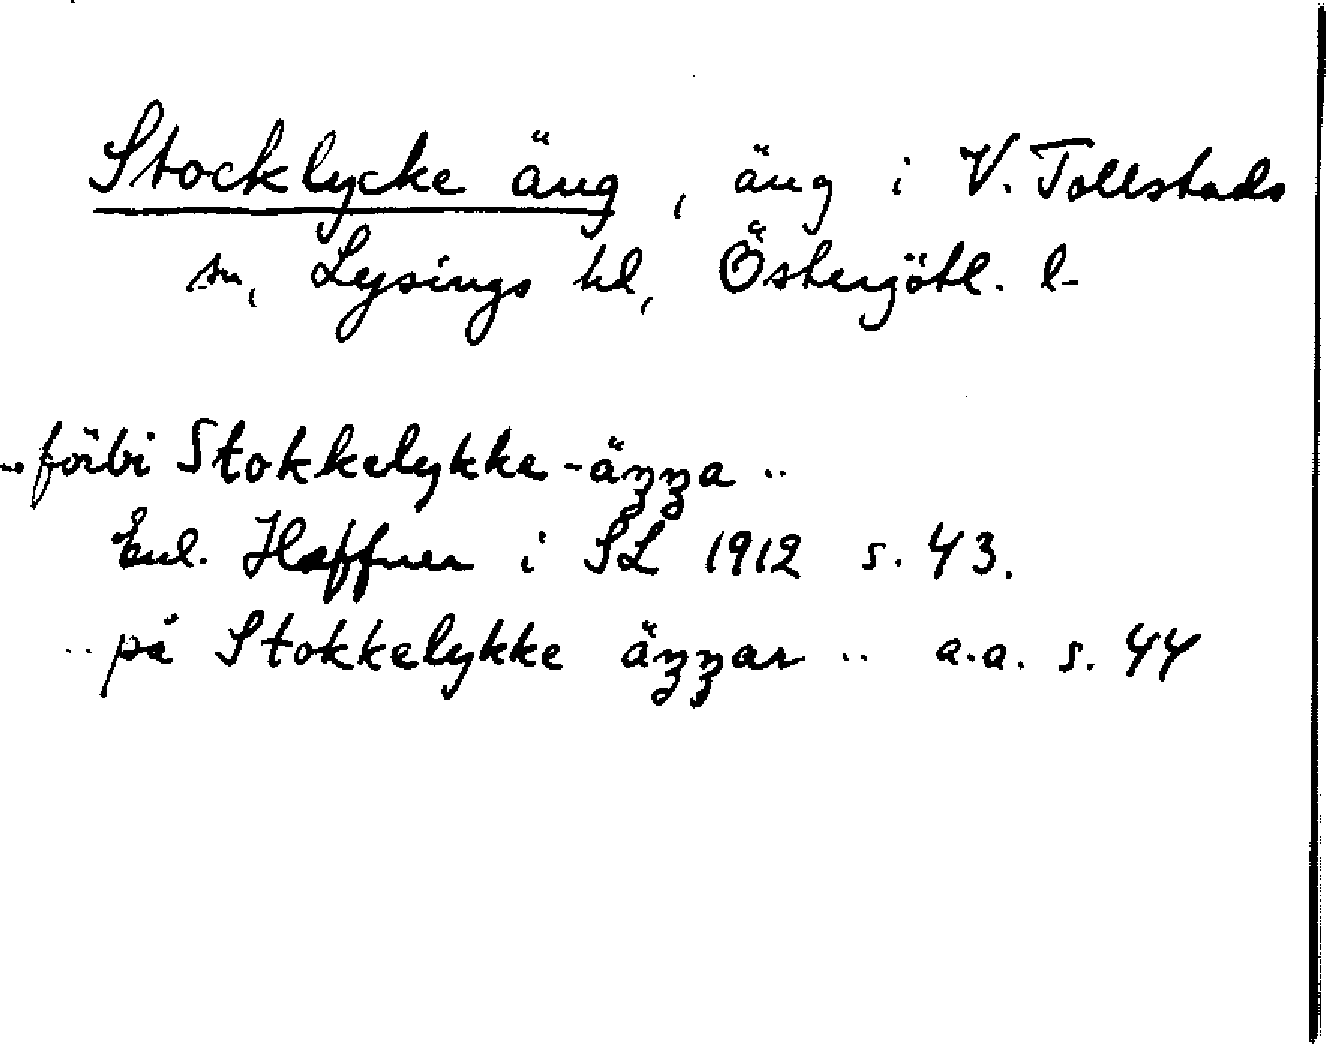 Stocklycke äng, äng i V. Tollstads
sn, Lysings hd, Östergötl. l-
.. förbi Stokkelykke-äŋŋa ..
Enl. Haffner i SL 1912 s. 43.
.. på Stokkelykke äŋŋar .. a.a. s. 44